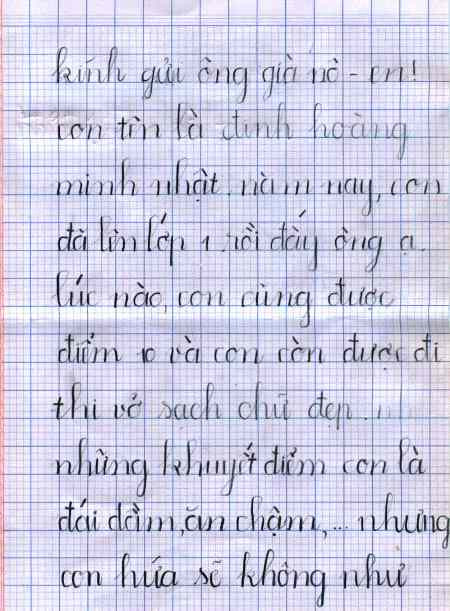 kính gửi ông già nô - en!
con tên là đinh hoàng
minh nhật. năm nay, con
đã lên lớp 1 rồi đấy ông ạ.
lúc nào, con cũng được
điểm 10 và con còn được đi
thi vở sạch chữ đẹp. nh
những khuyết điểm con là
đái dầm, ăn chậm,... nhưng
con hứa sẽ không như